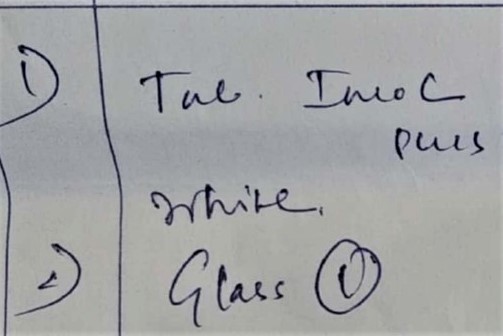 1) Tab. Imol
plus
white.
2) Glass (1)